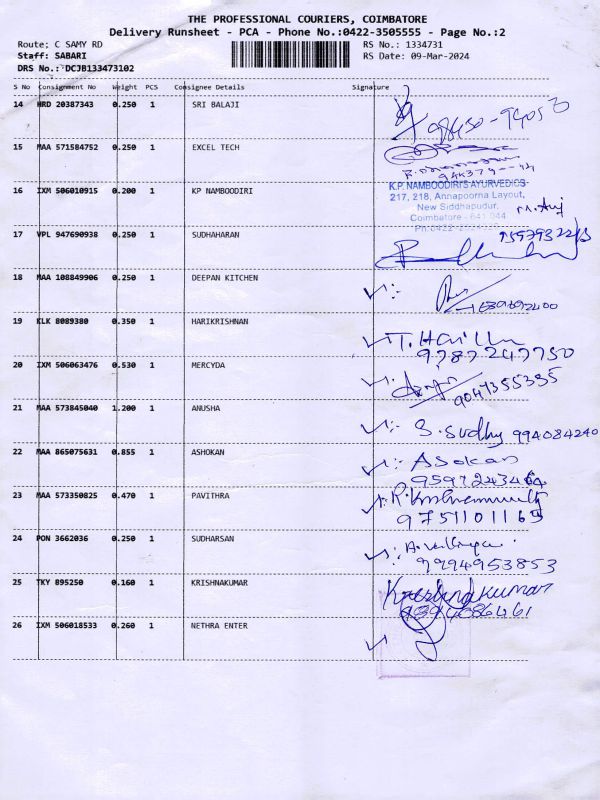 THE PROFESSIONAL COURIERS, COIMBATORE
Delivery Runsheet - PCA - Phone No.:0422-3505555 - Page No.:2
Route: C SAMY RD RS No.: 1334731
Staff: SABARI RS Date: 09-Mar-2024
DRS No.: DCJB133473102
S No Consignment No Weight PCS Consignee Details Signature
14 HRD 20387343 0.250 1 SRI BALAJI
15 MAA 571584752 0.250 1 EXCEL TECH
16 IXM 506010915 0.200 1 KP NAMBOODIRI
K.P. NAMBOODIRI'S AYURVEDICS
217, 218, Annapoorna Layout,
New Siddhapudur,
Coimbatore - 641 044
17 VPL 947690938 0.250 1 SUDHAHARAN
18 MAA 108849906 0.250 1 DEEPAN KITCHEN
19 KLK 8089380 0.350 1 HARIKRISHNAN
9787247750
20 IXM 506063476 0.530 1 MERCYDA
9047355355
21 MAA 573845040 1.200 1 ANUSHA S. Sudhy 994084240
22 MAA 865075631 0.855 1 ASHOKAN Asokan
9597243464
23 MAA 573350825 0.470 1 PAVITHRA
9751101165
24 PON 3662036 0.250 1 SUDHARSAN
9994953853
25 TKY 895250 0.160 1 KRISHNAKUMAR Krishnakumar
26 IXM 506018533 0.260 1 NETHRA ENTER